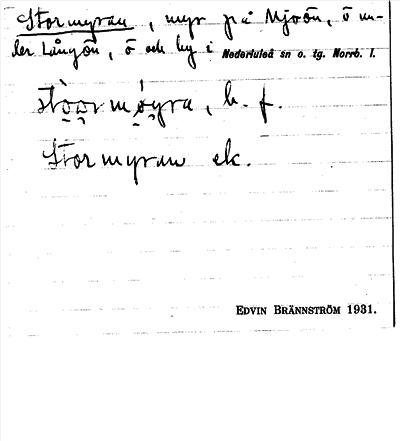 Stormyran, myr på Mjoön, ö un-
der Långön, ö och by i Nederluleå sn o. tg. Norrb. l.
b. f.
Stormyran ek.
EDVIN BRÄNNSTRÖM 1931.